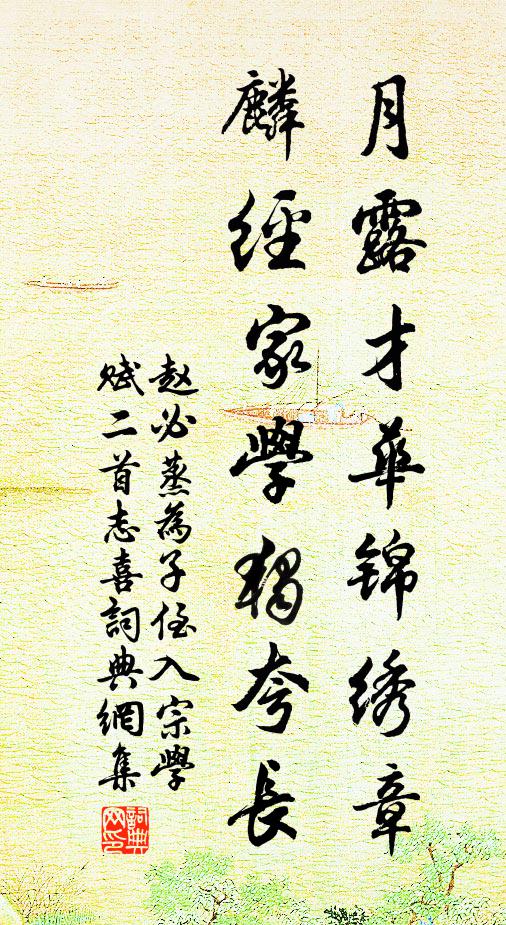 月露才華錦绣章
麟經家學獨夸長
赵必蒸為子侄入宗學
赋二首志喜詞典網集
詞典
网印